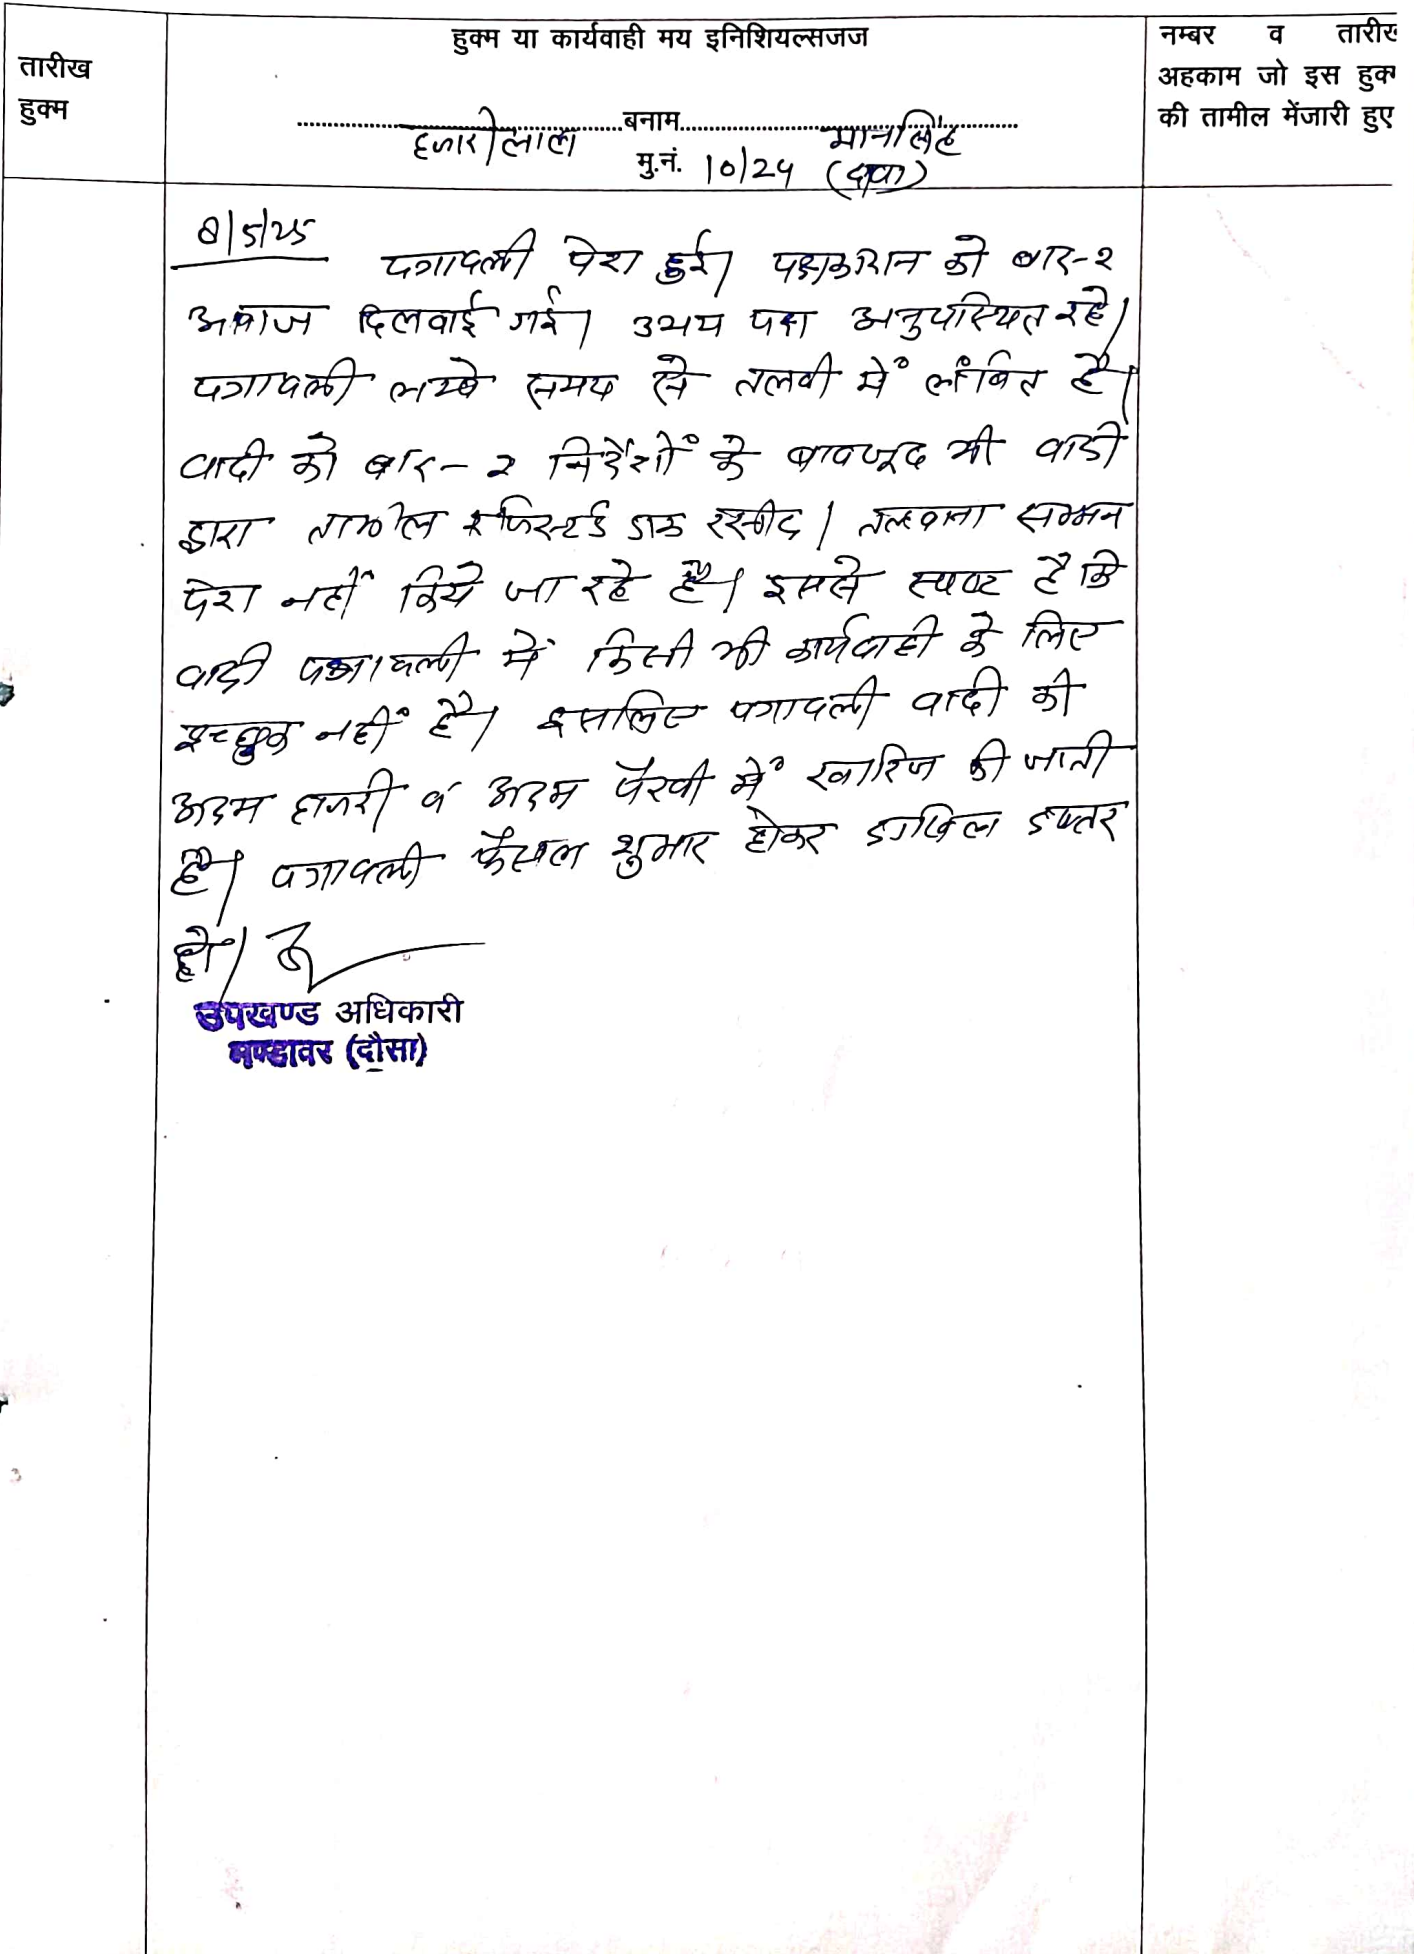 तारीख
हुक्म
हुक्म या कार्यवाही मय इनिशियल्सजज
हजारीलाल बनाम मानसिंह
मु.नं. 10/24 (दावा)
नम्बर व तारीख
अहकाम जो इस हुक्म
की तामील मेंजारी हुए
8/5/25
पत्रावली पेश हुई। पक्षकारान को बार-2
आवाज दिलवाई गई। उभय पक्ष अनुपस्थित रहे।
पत्रावली लम्बे समय से तलवी में लंबित है।
वादी को बार-2 निर्देशों के बावजूद भी वादी
द्वारा तामील रजिस्टर्ड डाक रसीद। तलवाना सम्मन
पेश नहीं किये जा रहे है। इससे स्पष्ट है कि
वादी पत्रावली में किसी भी कार्यवाही के लिए
इच्छुक नहीं है। इसलिए पत्रावली वादी की
अदम हाजरी व अदम पैरवी में खारिज की जाती
है। पत्रावली फैसल शुमार होकर दाखिल दफ्तर
हो।
उपखण्ड अधिकारी
मण्डावर (दौसा)